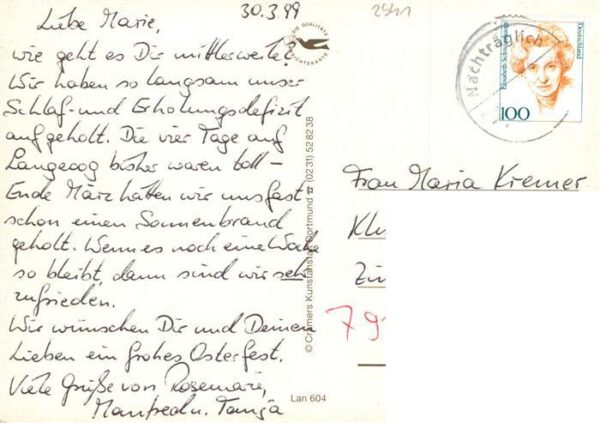 30.3.99
2541
Liebe Marie,
wie geht es Dir mittlerweile?
Wir haben so langsam unser
Schlaf- und Erholungsdefizit
aufgeholt. Die vier Tage auf
Langeoog bisher waren toll –
Ende März hätten wir uns fast
schon einen Sonnenbrand
geholt. Wenn es noch eine Woche
so bleibt, dann sind wir sehr
zufrieden.
Wir wünschen Dir und Deinen
Lieben ein frohes Osterfest.
Viele Grüße von Rosemarie,
Manfred u. Tanja
DIE QUALITÄTS
© Cramers Kunstanstalt Dortmund ☎ (0231) 528238
Lan 604
Nachträglich
Deutschland
100
Frau Maria Kremer
Klu
Zü
79